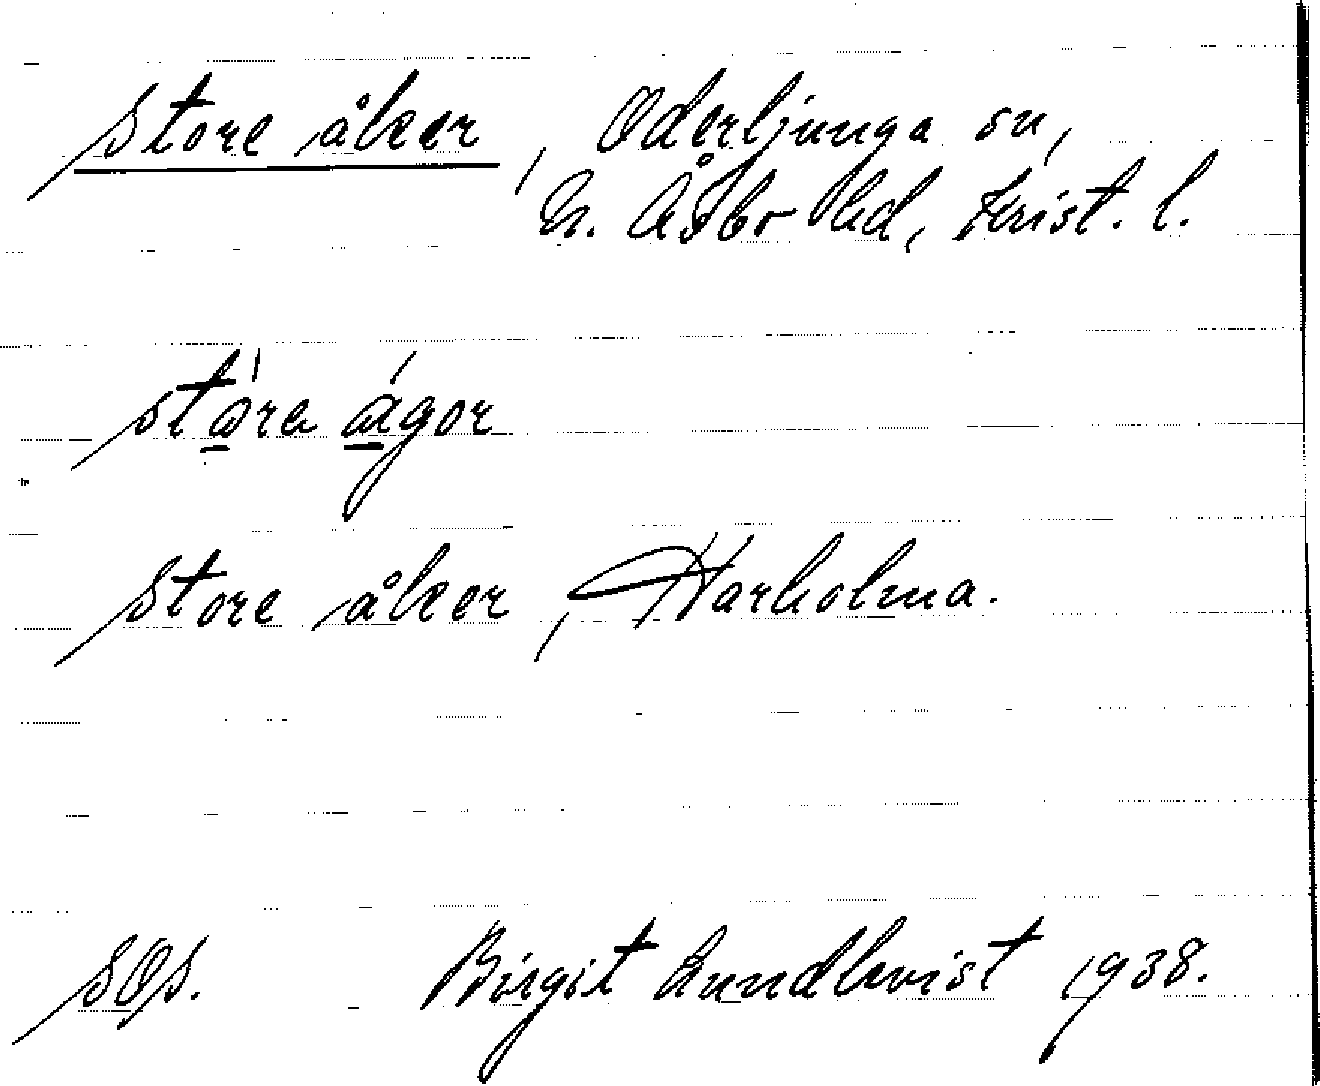 Store åker, Oderljunga sn,
N. Åsbo hd, Krist. l.
stora ågor
Store åker, Harholma.
SOS. Birgit Lundkvist 1938.